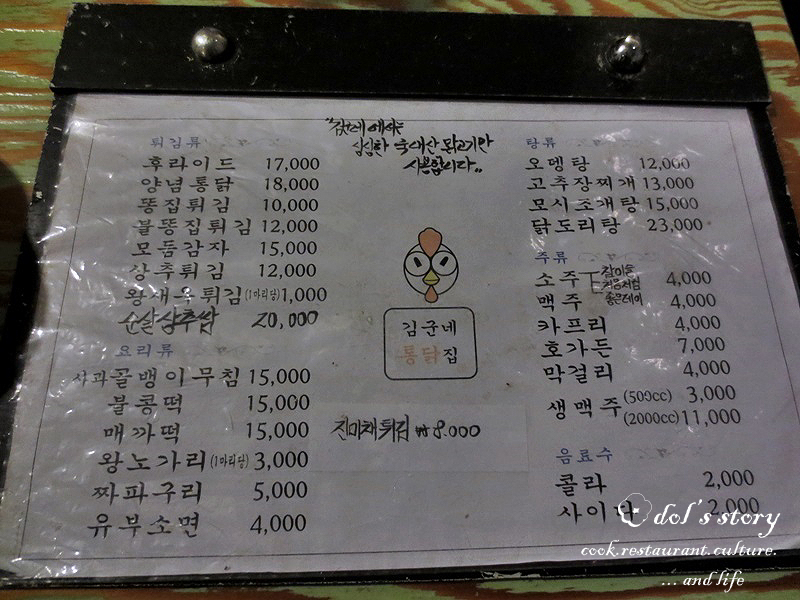 "김군네에서는
싱싱한 국내산 닭고기만
사용합니다"
튀김류
후라이드 17,000
양념통닭 18,000
똥집튀김 10,000
불똥집튀김 12,000
모듬감자 15,000
상추튀김 12,000
왕새우튀김(1마리당)1,000
순살상추쌈 20,000
요리류
사과골뱅이무침 15,000
불콩떡 15,000
매까떡 15,000
왕노가리(1마리당) 3,000
짜파구리 5,000
유부소면 4,000
김군네
통닭집
진미채튀김 ₩8.000
탕류
오뎅탕 12,000
고추장찌개 13,000
모시조개탕 15,000
닭도리탕 23,000
주류
소주 참이슬 처음처럼 좋은데이 4,000
맥주 4,000
카프리 4,000
호가든 7,000
막걸리 4,000
생맥주 (500cc) 3,000
(2000cc) 11,000
음료수
콜라 2,000
사이다 2,000
dol's story
cook.restaurant.culture.
... and life